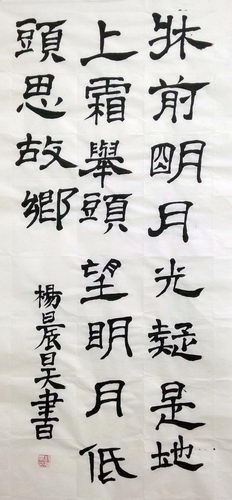 牀前明月光疑是地
上霜舉頭望明月低
頭思故鄉
楊晨昊書